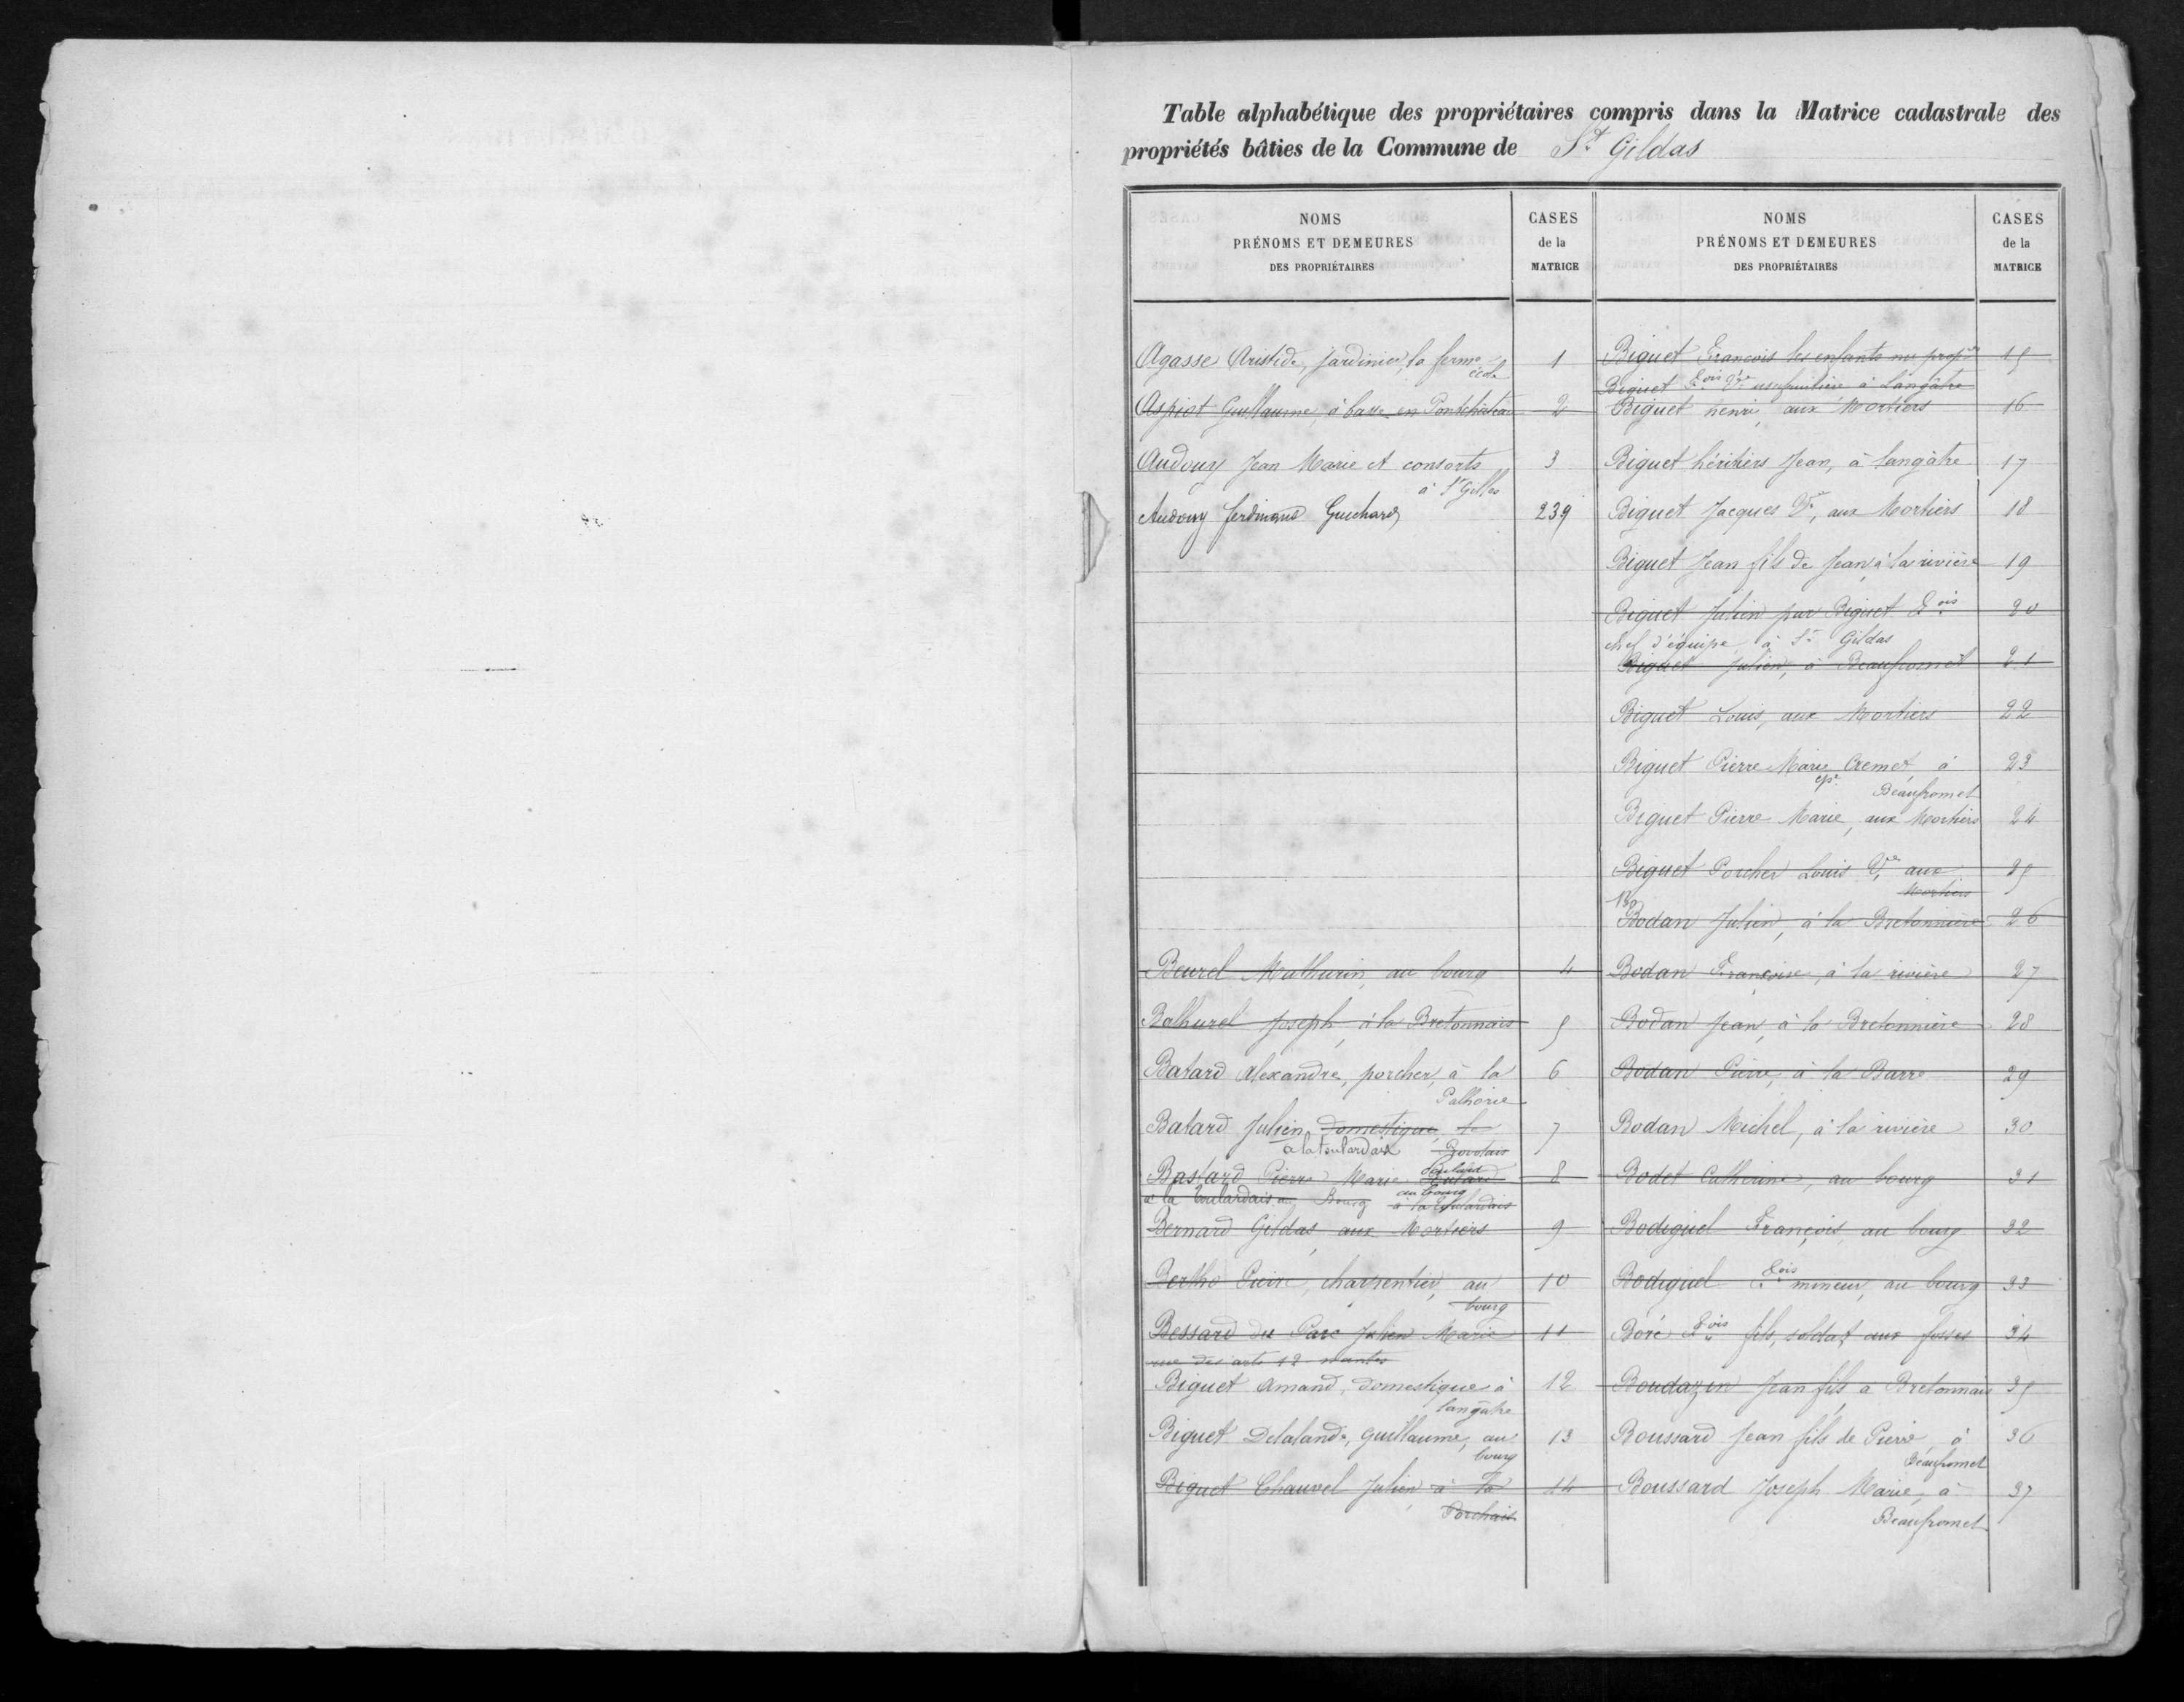 Table alphabétique des propriétaires compris dans la Matrice cadastrale des
propriétés bâties de la Commune de St Gildas
NOMS
PRÉNOMS ET DEMEURES
DES PROPRIÉTAIRES
CASES
de la
MATRICE
NOMS
PRÉNOMS ET DEMEURES
DES PROPRIÉTAIRES
CASES
de la
MATRICE
Agasse Aristide, jardinier, la ferme 1
école
Aspiot Guillaume, à basse en Pontchâteau 2
Audouy Jean Marie et consorts 3
à St Gilles
Audouy ferdinand Guichard 239
Beurel Mathurin, au bourg 4
Balhurel Joseph, à la Bretonnais 5
Batard Alexandre, porcher, à la 6
Palhorie
Batard Julien domestique, la 7
à la toulardais
Bastard Pierre Marie 8
à la toulardais au Bourg
au bourg
à la toulardais
Bernard Gildas, aux Mortiers 9
Bertho Pierre, charpentier, au 10
bourg
Bessard du Parc Julien Marie 11
rue des arts 12 nantes
Biguet Amand, domestique à 12
langâtre
Biguet Delalande, Guillaume, au 13
bourg
Biguet Chauvel Julien à la 14
Porchais
Biguet François les enfants nu propres 15
Biguet Fois Vve usufruitière à Langâtre
Biguet henri, aux Mortiers 16
Biguet héritiers Jean, à langâtre 17
Biguet Jacques Ve, aux Mortiers 18
Biguet Jean fils de Jean à la rivière 19
Biguet Julien par Biguet Fois 20
chef d'équipe à St Gildas
Biguet Julien, à Beaufromet 21
Biguet Louis, aux Mortiers 22
Biguet Pierre Marie Cremet, à 23
eps. Beaufromet
Biguet Pierre Marie, aux Mortiers 24
Biguet Porcher Louis Ve, aux 25
Mortiers
Bodan Julien, à la Bretonnière 26
Bodan Françoise, à la rivière 27
Bodan Jean, à la Bretonnière 28
Bodan Pierre, à la Barre 29
Bodan Michel, à la rivière 30
Bodet Catherine, au bourg 31
Bodiguel François, au bourg 32
Bodiguel Fois mineur, au bourg 33
Boré Fois fils, soldat, aux fosses 34
Boudazin Jean fils, a Bretonnais 35
Boussard Jean fils de Pierre, à 36
Beaufromet
Boussard Joseph Marie, à 37
Beaufromet